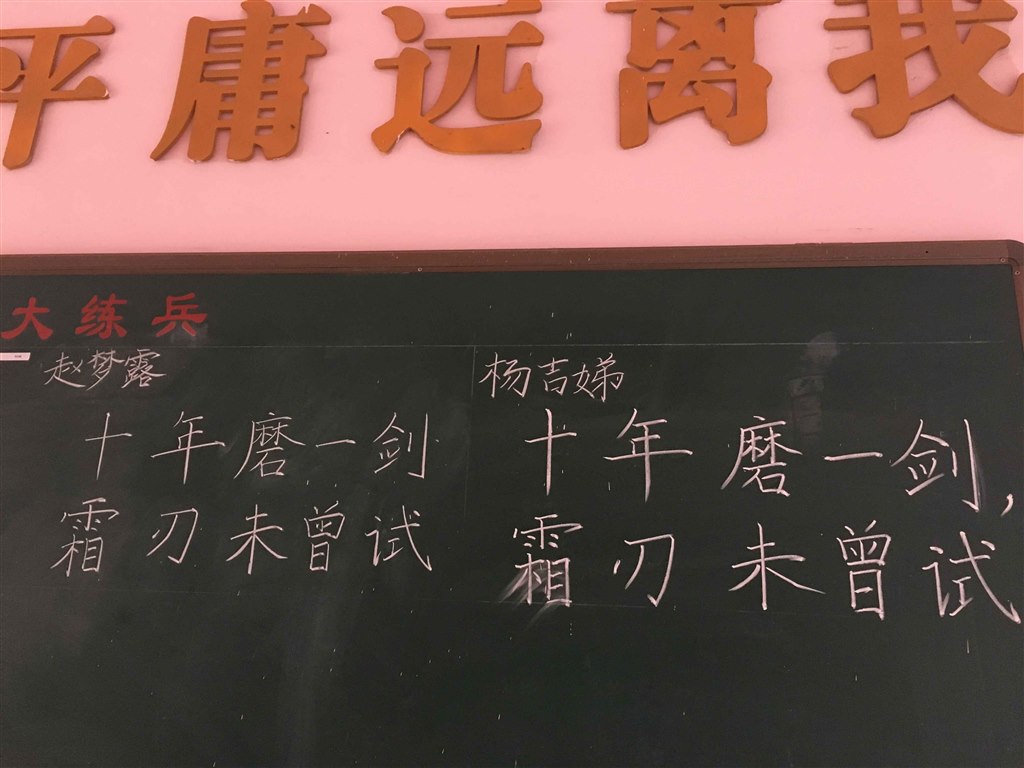 平庸远离我
大练兵
赵梦露
十年磨一剑
霜刃未曾试
杨吉娣
十年磨一剑,
霜刃未曾试